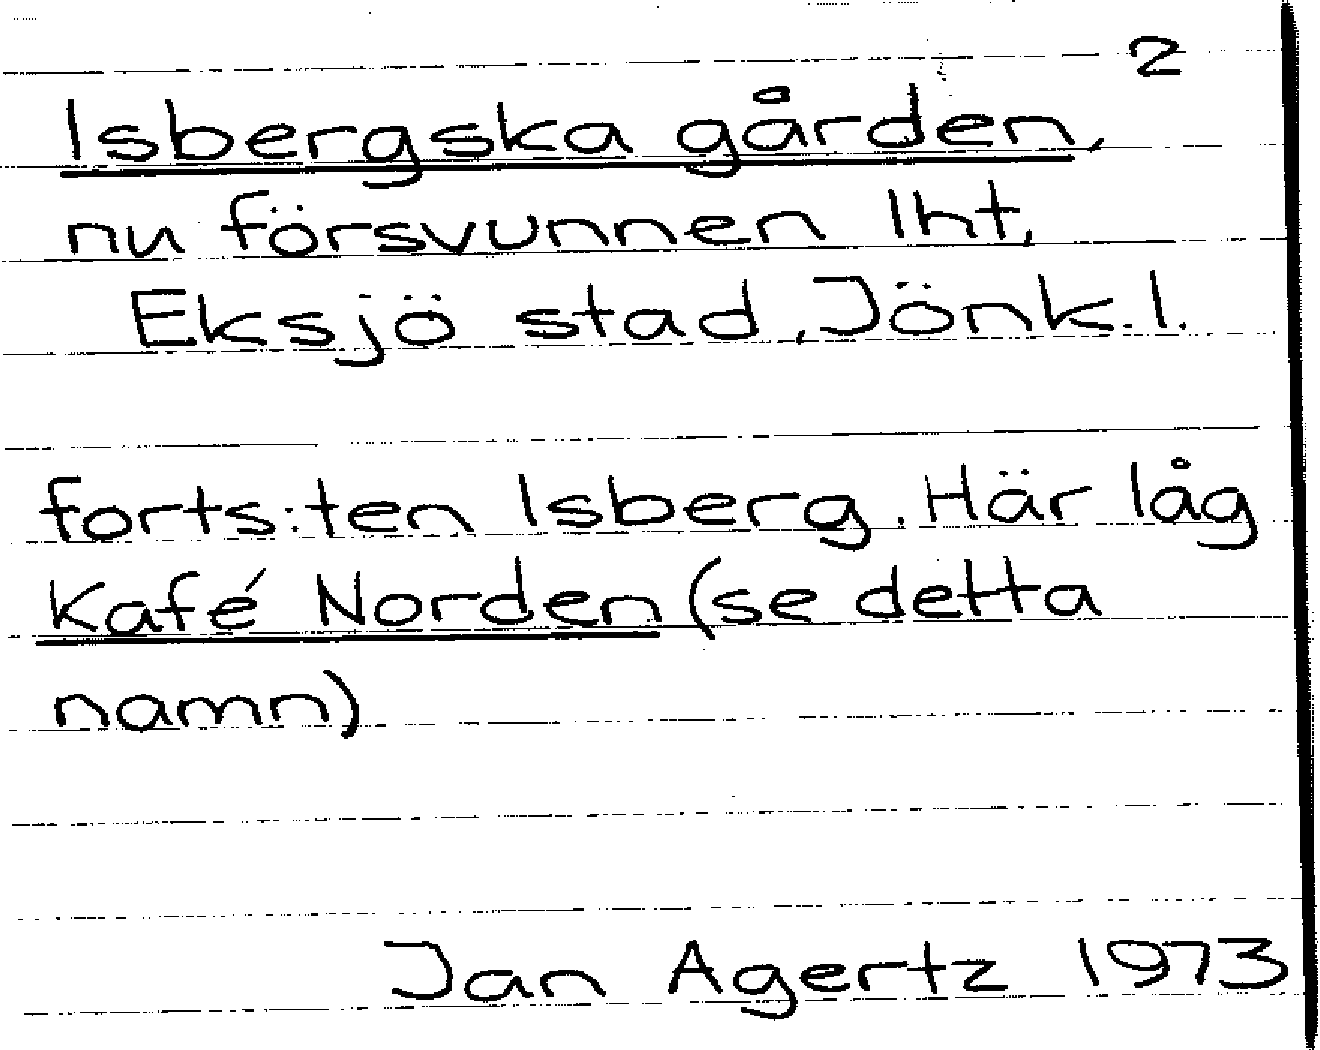 2
Isbergska gården,
nu försvunnen lht,
Eksjö stad, Jönk.l.
forts:ten Isberg. Här låg
Kafé Norden (se detta
namn)
Jan Agertz 1973